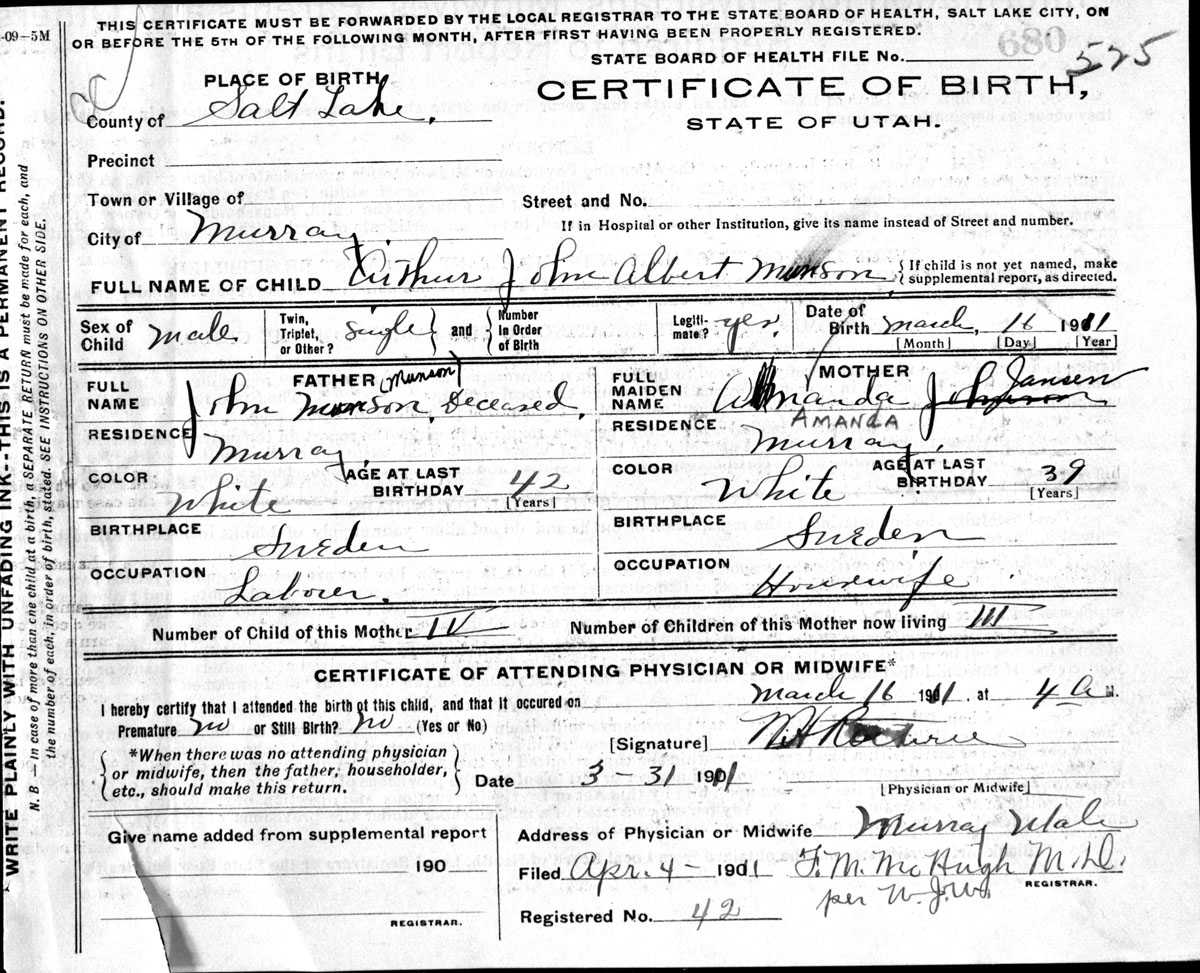 THIS CERTIFICATE MUST BE FORWARDED BY THE LOCAL REGISTRAR TO THE STATE BOARD OF HEALTH, SALT LAKE CITY, ON
-09-5M
OR BEFORE THE 5TH OF THE FOLLOWING MONTH, AFTER FIRST HAVING BEEN PROPERLY REGISTERED.
680
STATE BOARD OF HEALTH FILE No. 525
PLACE OF BIRTH
CERTIFICATE OF BIRTH,
County of Salt Lake,
STATE OF UTAH.
Precinct
Town or Village of
Street and No.
If in Hospital or other Institution, give its name instead of Street and number.
City of Murray
FULL NAME OF CHILD Arthur John Albert Munson { If child is not yet named, make supplemental report, as directed.
Sex of Child Male
Twin, Triplet, or Other? single } and { Number in Order of Birth
Legitimate? yes
Date of Birth March, 16 1911
[Month] [Day] [Year]
FATHER
FULL NAME John Munson (Munson) Deceased.
RESIDENCE Murray
COLOR White AGE AT LAST BIRTHDAY 42 [Years]
BIRTHPLACE Sweden
OCCUPATION Laborer.
MOTHER
FULL MAIDEN NAME Amanda Johnson Jansen
AMANDA
RESIDENCE Murray
COLOR White AGE AT LAST BIRTHDAY 39 [Years]
BIRTHPLACE Sweden
OCCUPATION Housewife
Number of Child of this Mother IV Number of Children of this Mother now living III
CERTIFICATE OF ATTENDING PHYSICIAN OR MIDWIFE*
I hereby certify that I attended the birth of this child, and that it occured on March 16 1911. at 4 a M.
Premature no or Still Birth? no (Yes or No)
[Signature]
*When there was no attending physician
or midwife, then the father, householder,
etc., should make this return.
Date 3-31 1911
[Physician or Midwife]
Give name added from supplemental report
190
REGISTRAR.
Address of Physician or Midwife Murray Utah
Filed Apr. 4 - 1901 F. M. McHugh M.D.
REGISTRAR.
per W. J. W.
Registered No. 42
WRITE PLAINLY WITH UNFADING INK--THIS IS A PERMANENT RECORD.
N. B.—In case of more than one child at a birth, a SEPARATE RETURN must be made for each, and
the number of each, in order of birth, stated. SEE INSTRUCTIONS ON OTHER SIDE.